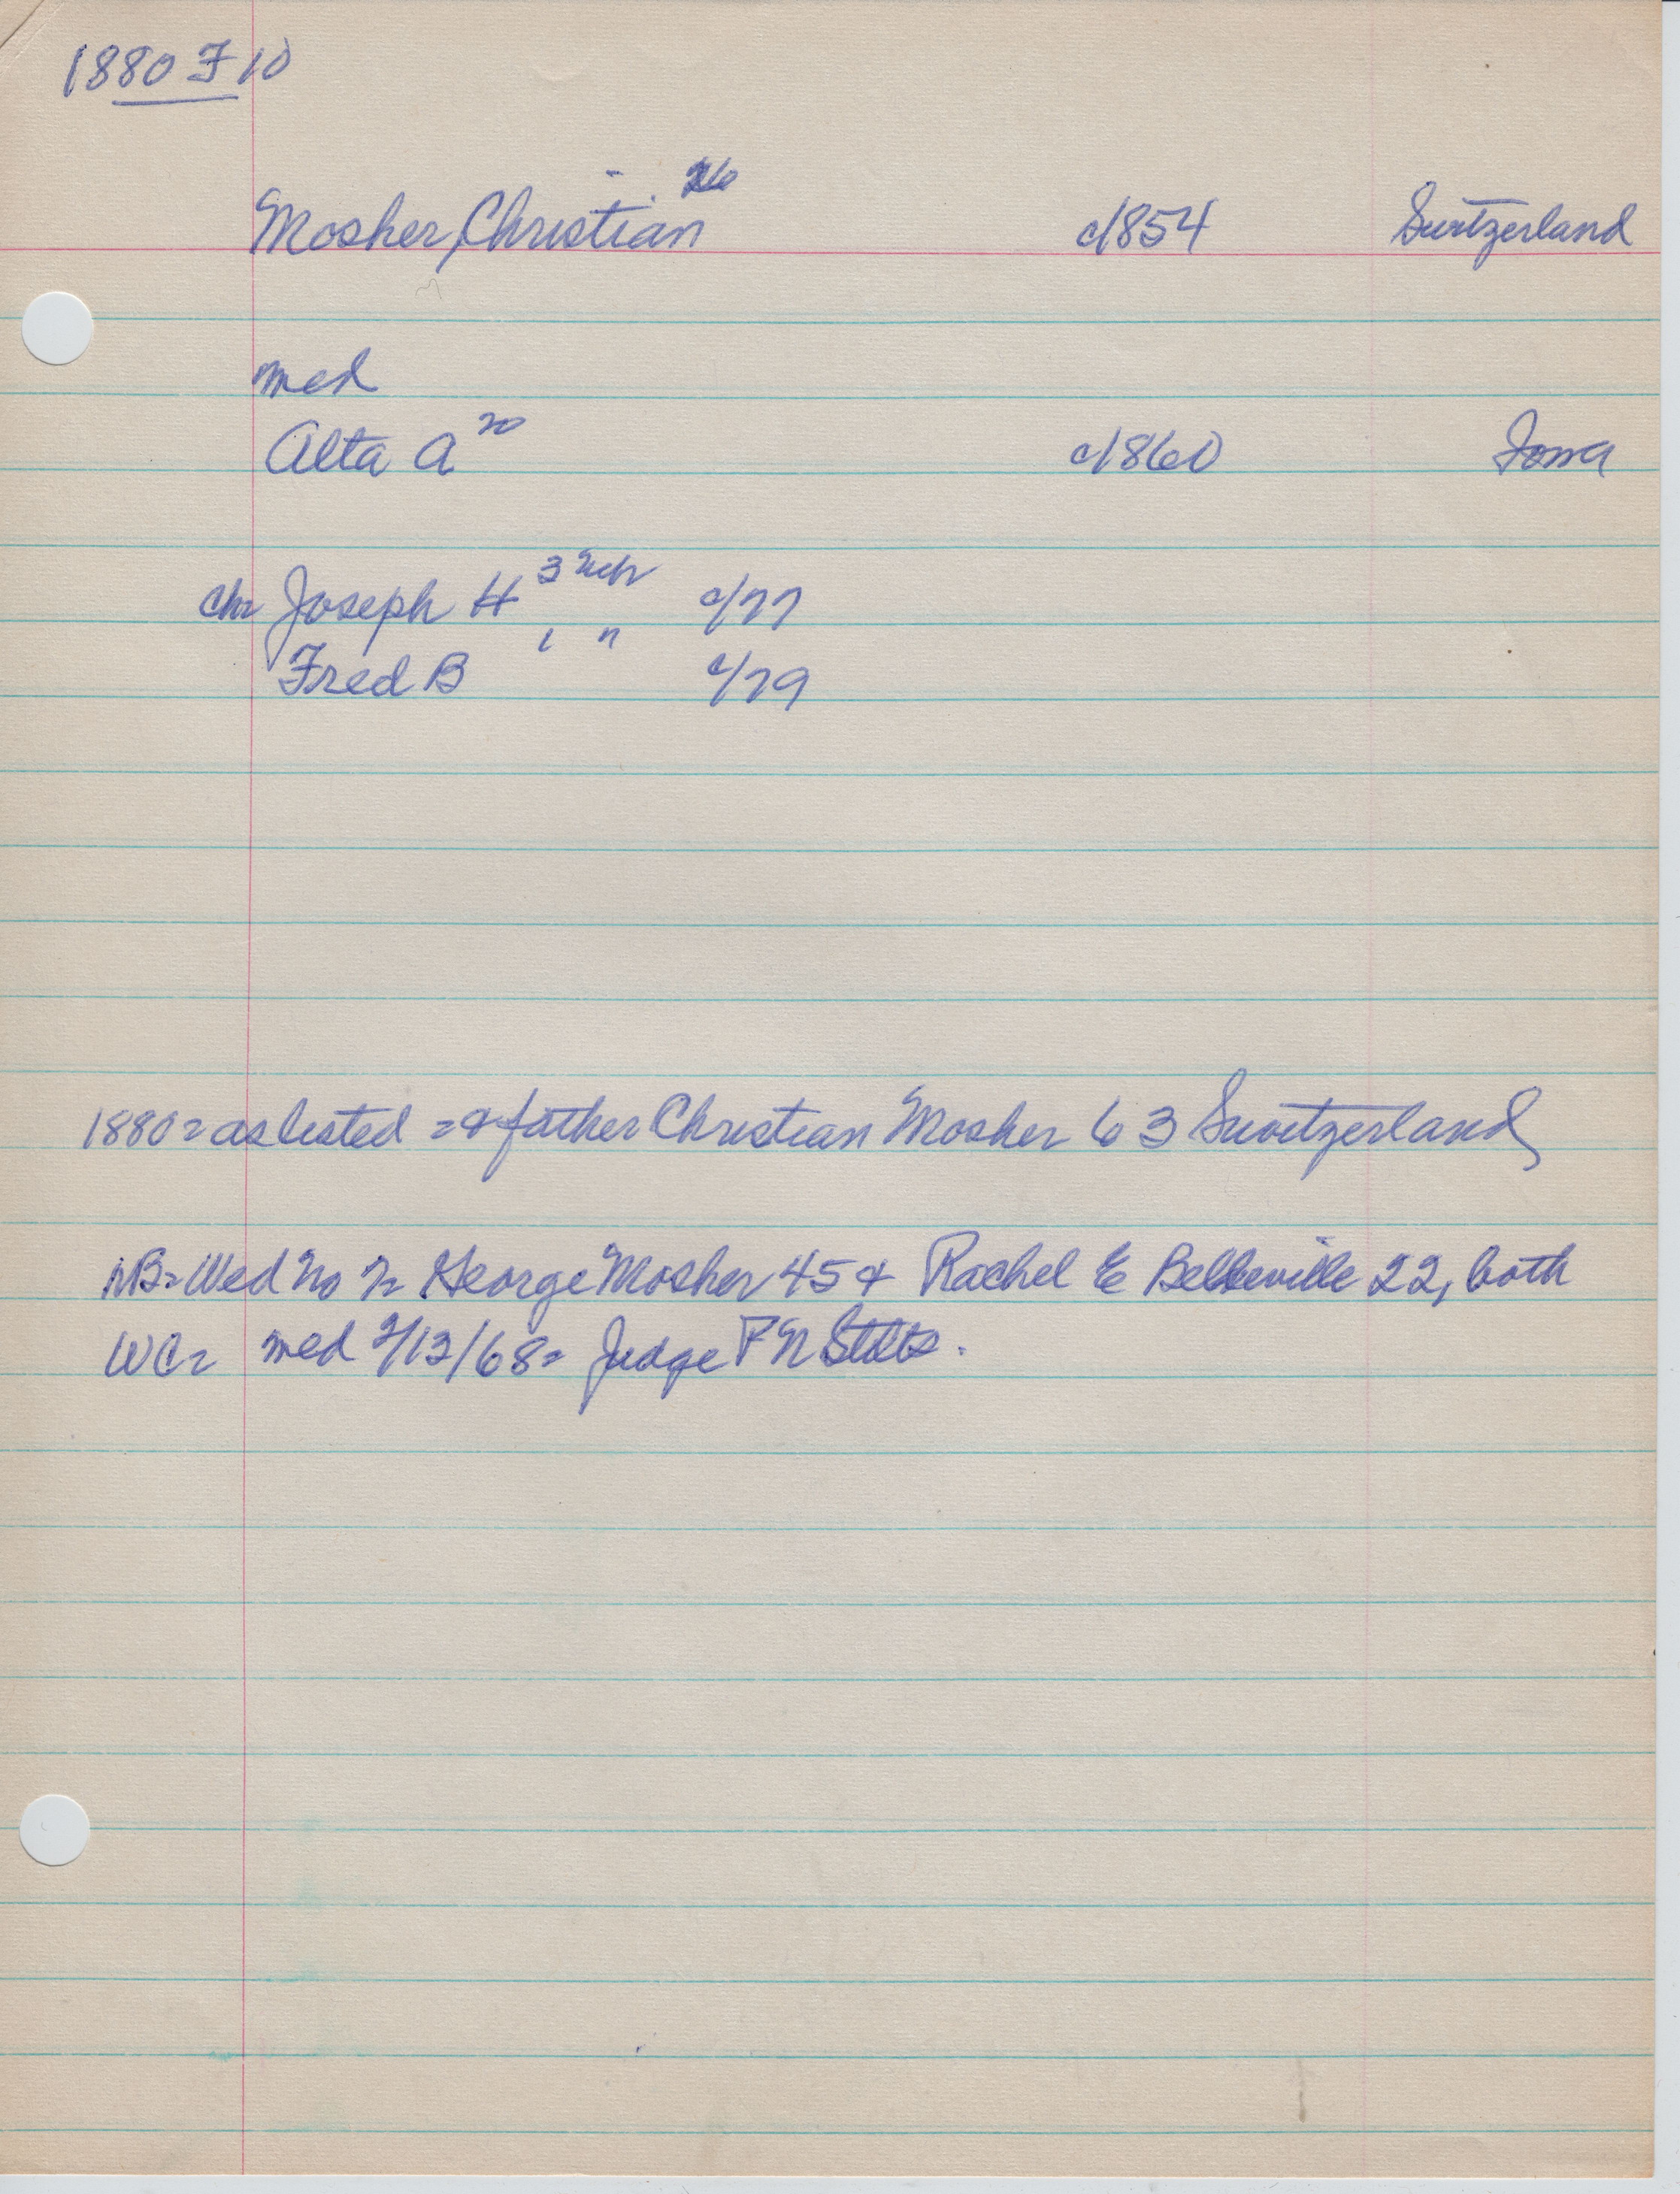 1880 F 10
Mosher, Christian 26 c/1854 Switzerland
med
Alta A 20 c/1860 Iowa
Chr Joseph H 3 c/77
Fred B 1 " c/79
1880 = as listed = & father Christian Mosher 63 Switzerland
NB = Wed No 7 = George Mosher 45 & Rachel E Belleville 22, both
WC = med 2/13/68 = Judge P N Stotts.